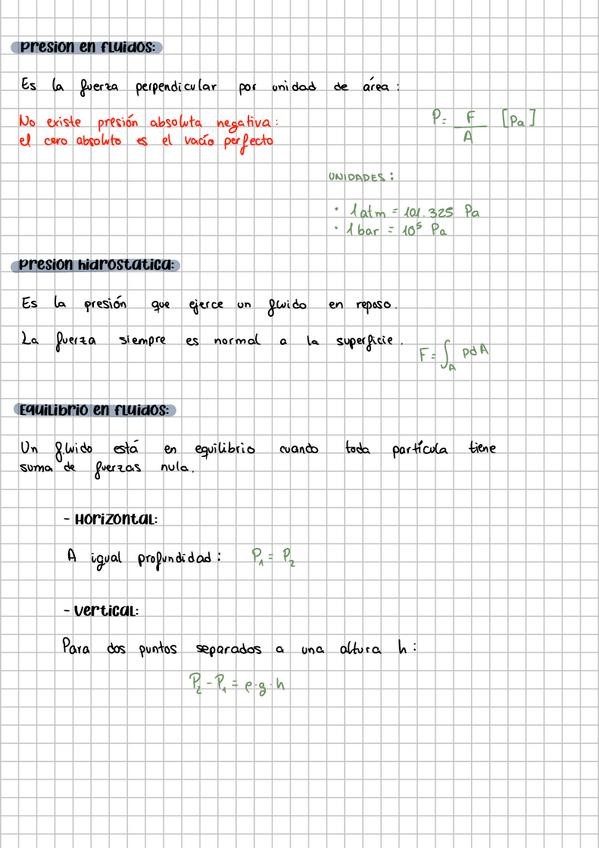 Presion en fluidos:
Es la fuerza perpendicular por unidad de área:
No existe presión absoluta negativa:
el cero absoluto es el vacío perfecto
P = F / A [Pa]
UNIDADES:
• 1 atm = 101.325 Pa
• 1 bar = 10⁵ Pa
Presion hidrostatica:
Es la presión que ejerce un fluido en reposo.
La fuerza siempre es normal a la superficie.
F = ∫_A p dA
Equilibrio en fluidos:
Un fluido está en equilibrio cuando toda partícula tiene
suma de fuerzas nula.
- Horizontal:
A igual profundidad: P₁ = P₂
- Vertical:
Para dos puntos separados a una altura h:
P₂ - P₁ = ρ·g·h